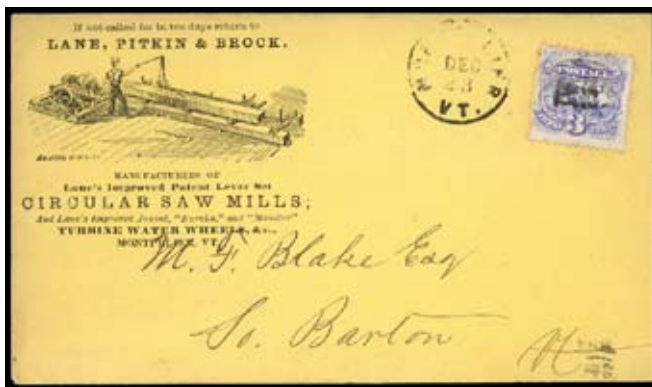 If not called for in ten days return to
LANE, PITKIN & BROCK.
MANUFACTURERS OF
Lane's Improved Patent Lever Set
CIRCULAR SAW MILLS;
And Lane's Improved Jonval, "Eureka," and "Monitor"
TURBINE WATER WHEELS, &c.,
MONTPELIER, VT.
MONTPELIER
DEC
VT.
POSTAGE
3
M. F. Blake Esq
So. Barton
Vt